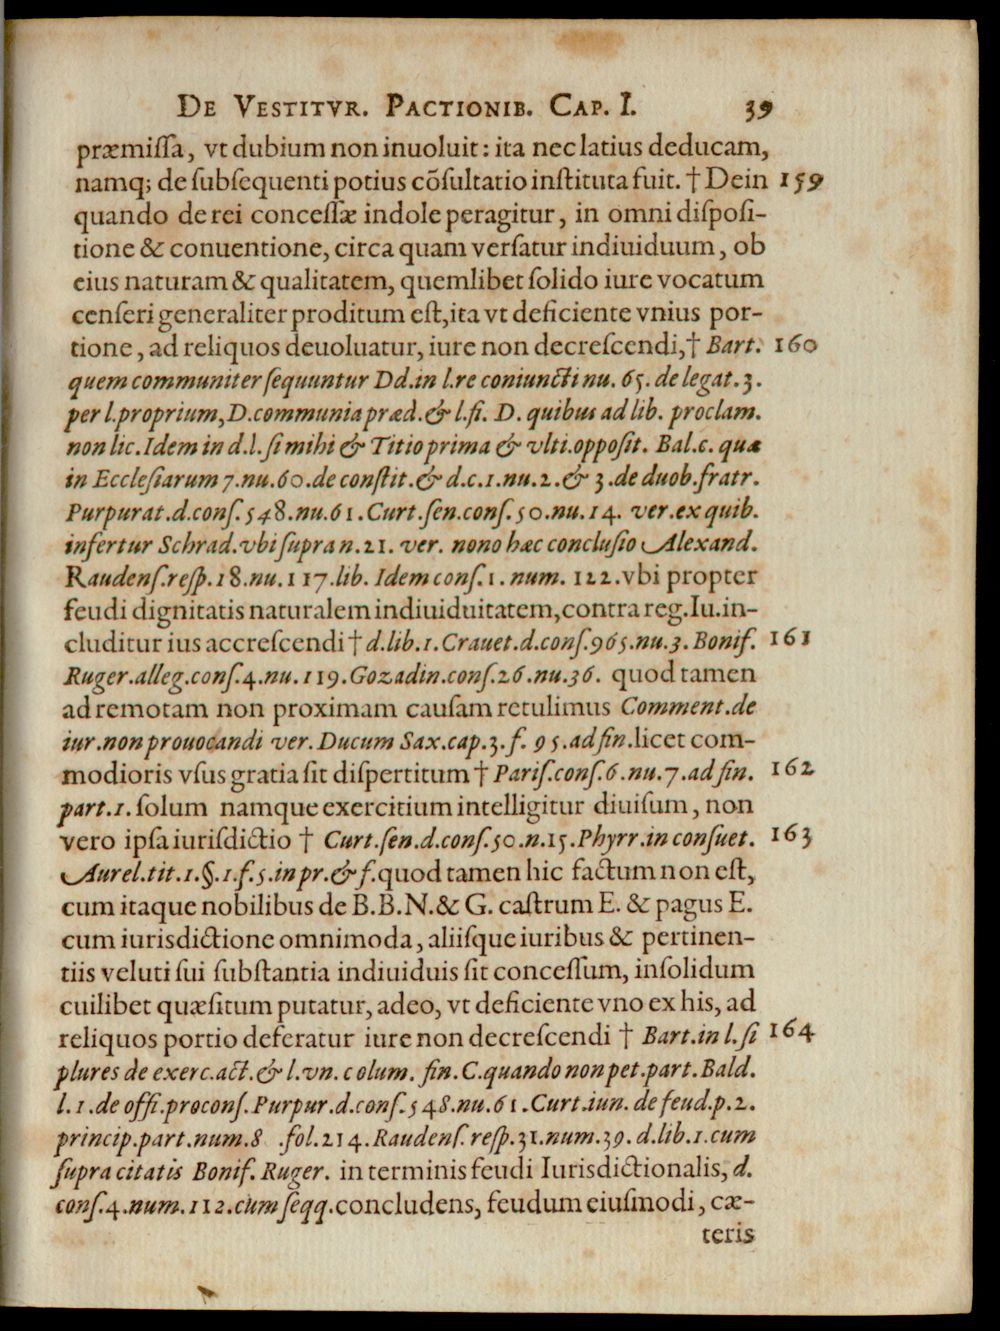 De Vestitvr. Pactionib. Cap. I. 39
præmiſſa, vt dubium non inuoluit: ita nec latius deducam,
namq; de ſubſequenti potius cõſultatio inſtituta fuit. † Dein 159
quando de rei conceſſæ indole peragitur, in omni diſpoſi-
tione & conuentione, circa quam verſatur indiuiduum, ob
eius naturam & qualitatem, quemlibet ſolido iure vocatum
cenſeri generaliter proditum eſt, ita vt deficiente vnius por-
tione, ad reliquos deuoluatur, iure non decreſcendi, † Bart. 160
quem communiter ſequuntur Dd. in l. re coniuncti nu. 65. de legat. 3.
per l. proprium, D. communia præd. & l. fi. D. quibus ad lib. proclam.
non lic. Idem in d. l. ſi mihi & Titio prima & vlti. oppoſit. Bal. c. quæ
in Eccleſiarum 7. nu. 60. de conſtit. & d. c. 1. nu. 2. & 3. de duob. fratr.
Purpurat. d. conſ. 548. nu. 61. Curt. ſen. conſ. 50. nu. 14. ver. ex quib.
infertur Schrad. vbi ſupra n. 21. ver. nono hæc concluſio Alexand.
Raudenſ. reſp. 18. nu. 117. lib. Idem conſ. 1. num. 122. vbi propter
feudi dignitatis naturalem indiuiduitatem, contra reg. Iu. in-
cluditur ius accreſcendi † d. lib. 1. Crauet. d. conſ. 965. nu. 3. Bonif. 161
Ruger. alleg. conſ. 4. nu. 119. Gozadin. conſ. 26. nu. 36. quod tamen
ad remotam non proximam cauſam retulimus Comment. de
iur. non prouocandi ver. Ducum Sax. cap. 3. f. 95. ad fin. licet com-
modioris vſus gratia ſit diſpertitum † Pariſ. conſ. 6. nu. 7. ad fin. 162
part. 1. ſolum namque exercitium intelligitur diuiſum, non
vero ipſa iuriſdictio † Curt. ſen. d. conſ. 50. n. 15. Phyrr. in conſuet. 163
Aurel. tit. 1. §. 1. f. 5. in pr. & f. quod tamen hic factum non eſt,
cum itaque nobilibus de B. B. N. & G. caſtrum E. & pagus E.
cum iurisdictione omnimoda, aliiſque iuribus & pertinen-
tiis veluti ſui ſubſtantia indiuiduis ſit conceſſum, inſolidum
cuilibet quæſitum putatur, adeo, vt deficiente vno ex his, ad
reliquos portio deferatur iure non decreſcendi † Bart. in l. ſi 164
plures de exerc. act. & l. vn. colum. fin. C. quando non pet. part. Bald.
l. 1. de offi. proconſ. Purpur. d. conſ. 548. nu. 61. Curt. iun. de feud. p. 2.
princip. part. num. 8 . fol. 214. Raudenſ. reſp. 31. num. 39. d. lib. 1. cum
ſupra citatis Bonif. Ruger. in terminis feudi Iurisdictionalis, d.
conſ. 4. num. 112. cum ſeqq. concludens, feudum eiuſmodi, cæ-
teris